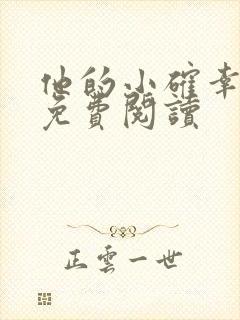 他的小確幸
免費閱讀
正雲一世